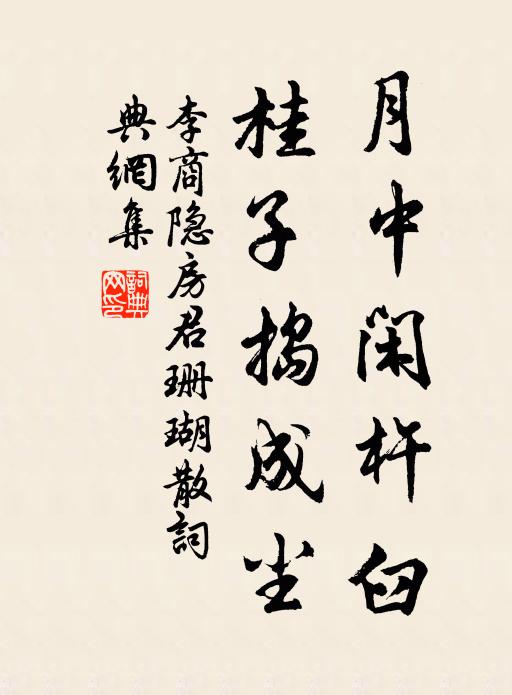 月中閑杵臼
桂子搗成尘
李商隐房君珊瑚散詞
典網集
詞典网印